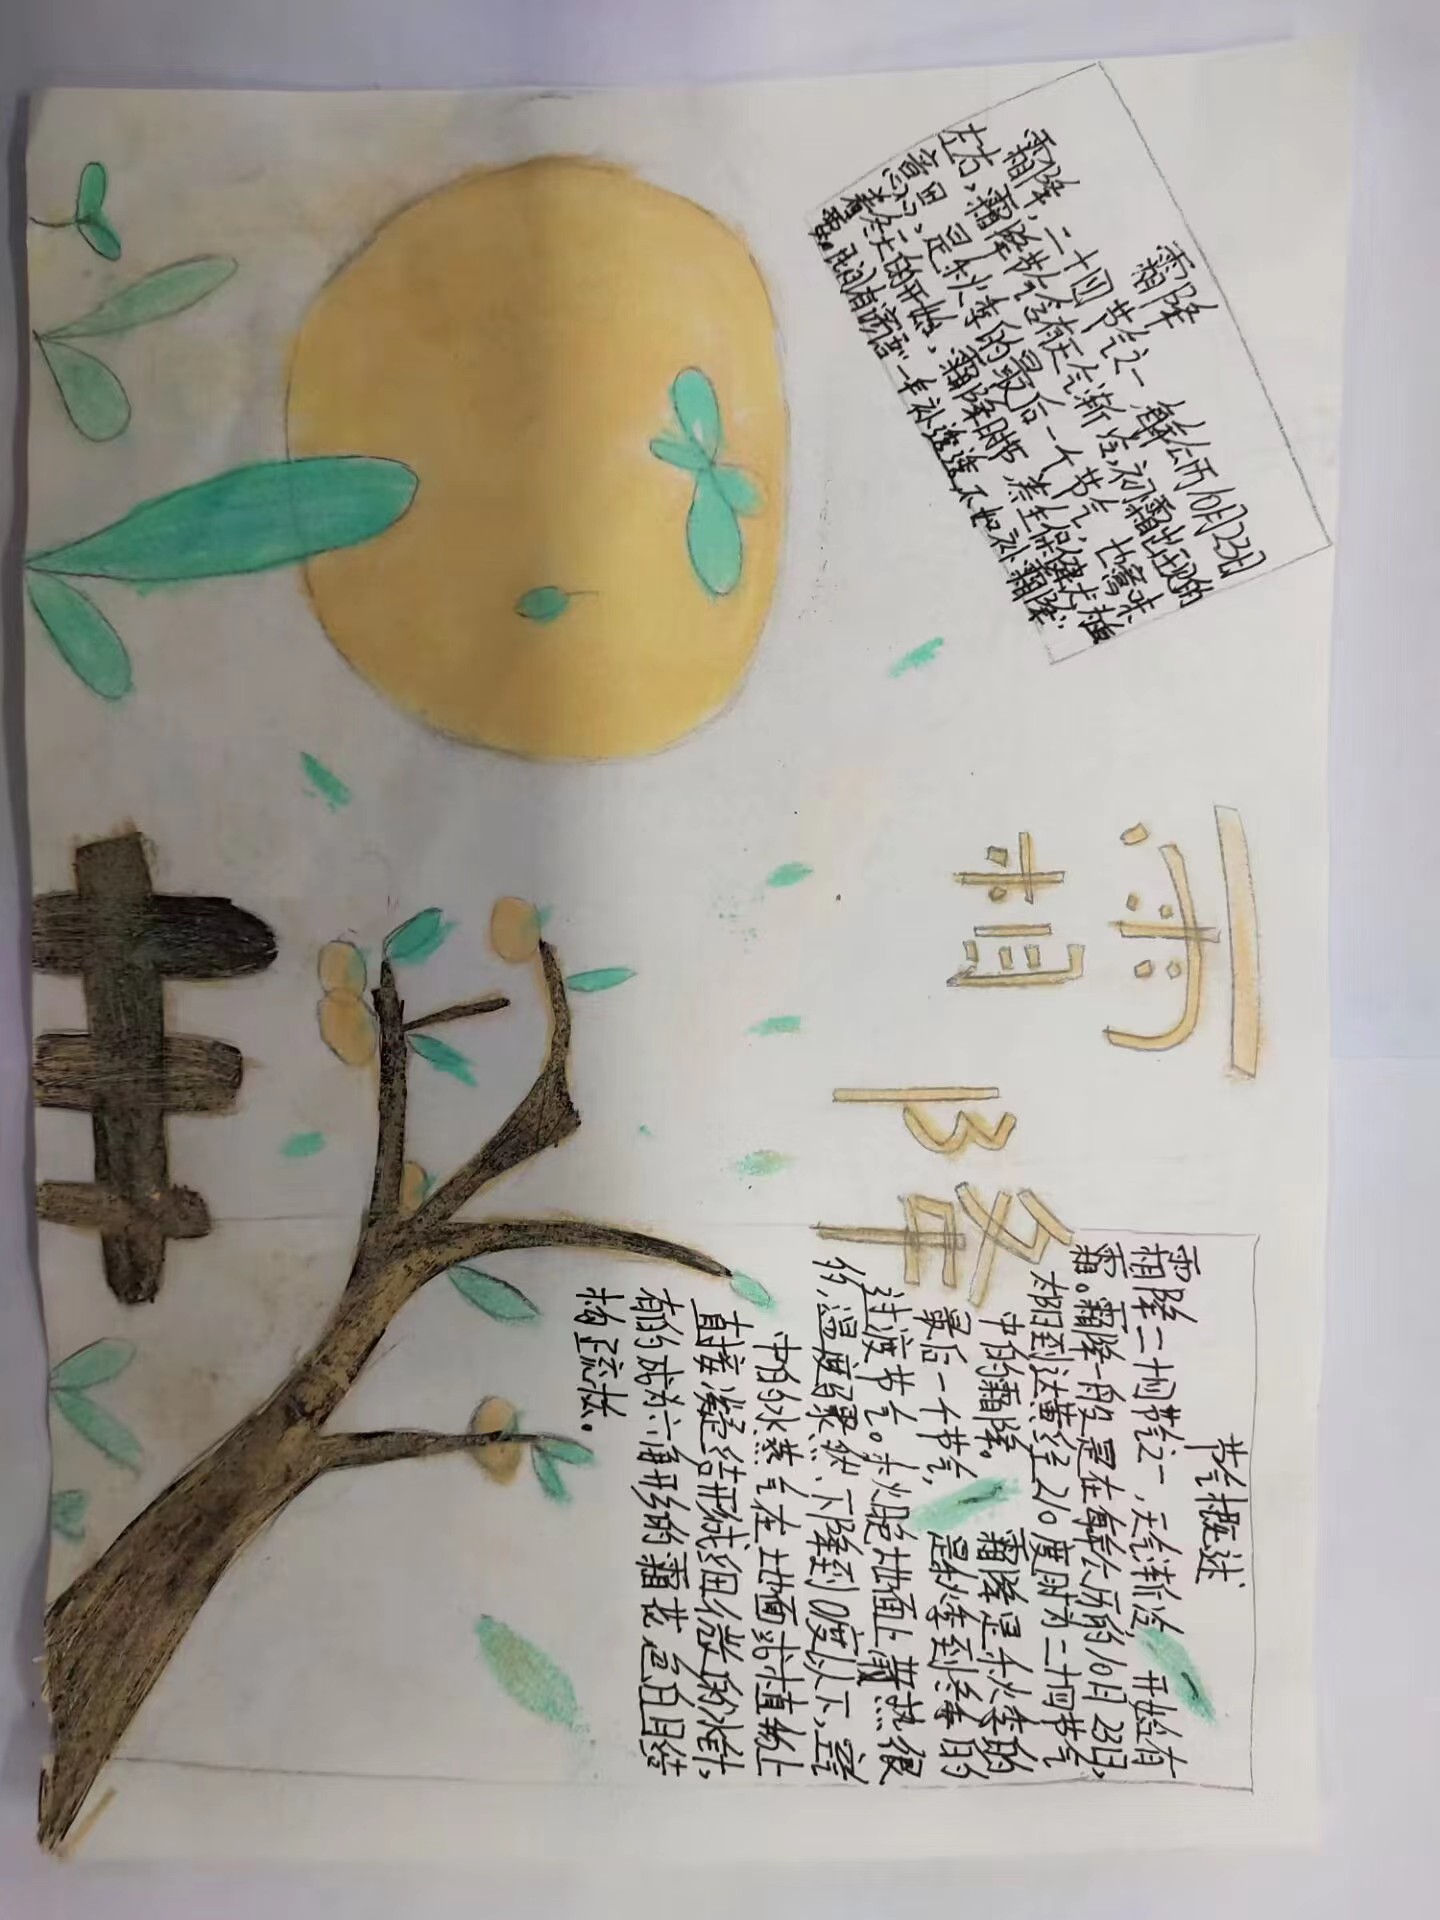 霜降
霜降
霜降,二十四节气之一,每年公历10月23日
左右,霜降节气含有天气渐冷,初霜出现的
意思,是秋季的最后一个节气,也意味
着冬天的开始,霜降时节,养生保健尤为重
要。民间有谚语"一年补透透,不如补霜降"
节气概述
霜降二十四节气之一,天气渐冷,开始有
霜。霜降一般是在每年公历的10月23日,
太阳到达黄经210度时为二十四节气
中的霜降。霜降是秋季的
最后一个节气,是秋季到冬季的
过渡节气。秋晚地面上散热很
多,温度骤然下降到0度以下,空
中的水蒸气在土地面或植物上
直接凝结形成细微的冰针,
有的成为六角形的霜花色白且结
构疏松。